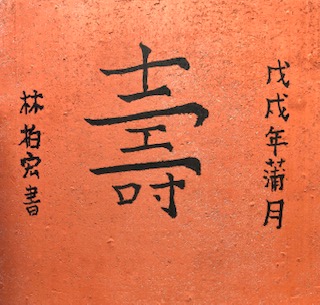 戊戌年蒲月
壽
林柏宏書